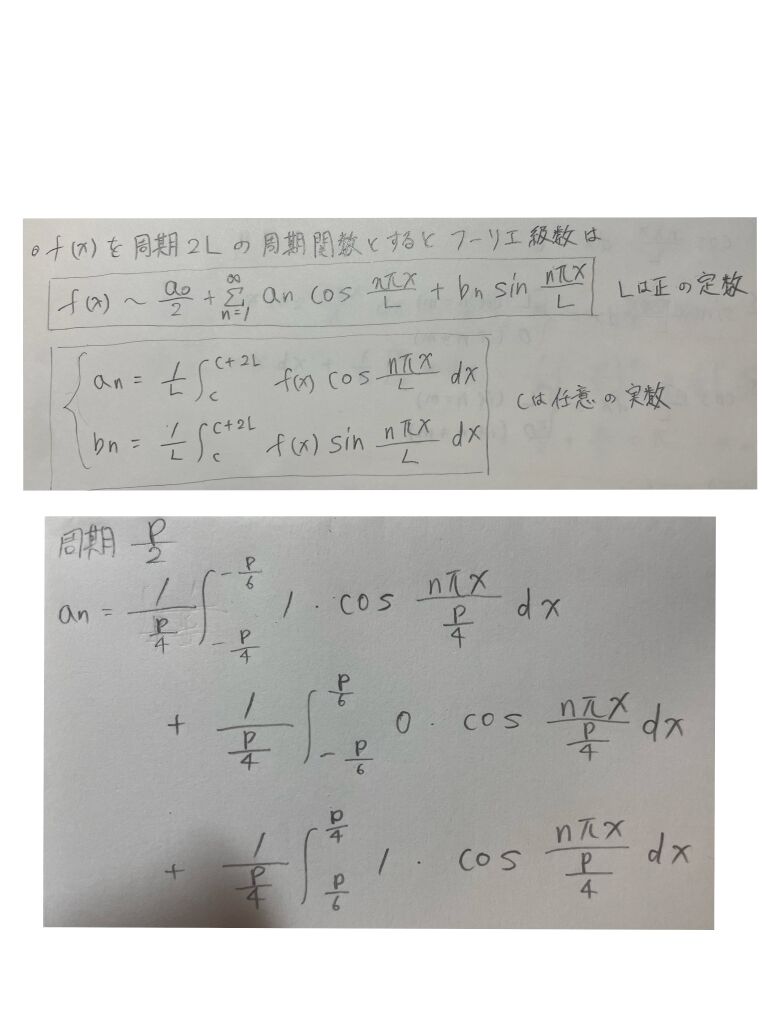 ○ f(x) を 周期 2L の 周期関数とすると フーリエ級数は
f(x) ~ a₀/2 + Σ_{n=1}^{∞} an cos nπx/L + bn sin nπx/L Lは正の定数
an = 1/L ∫_{c}^{c+2L} f(x) cos nπx/L dx
bn = 1/L ∫_{c}^{c+2L} f(x) sin nπx/L dx
Cは任意の実数
周期 P/2
an = 1/(P/4) ∫_{-P/4}^{-P/6} 1 · cos nπx/(P/4) dx
+ 1/(P/4) ∫_{-P/6}^{P/6} 0 · cos nπx/(P/4) dx
+ 1/(P/4) ∫_{P/6}^{P/4} 1 · cos nπx/(P/4) dx